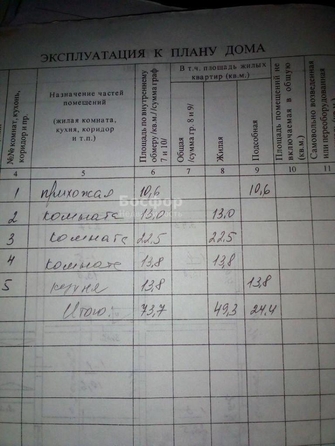 ЭКСПЛУАТАЦИЯ К ПЛАНУ ДОМА
№№ комнат, кухонь, коридор и пр.
Назначение частей помещений
(жилая комната, кухня, коридор и т.п.)
Площадь по внутреннему обмеру /кв.м/ /сумма граф 7 и 10/
В т.ч. площадь жилых квартир (кв.м.)
Общая /сумма гр. 8 и 9/
Жилая
Подсобная
Площадь помещений не включаемая в общую (кв.м.)
Самовольно возведенная или переоборудованная
4 5 6 7 8 9 10 11
1 прихожая 10,6 10,6
2 комната 13,0 13,0
3 комната 22,5 22,5
4 комната 13,8 13,8
5 кухня 13,8 13,8
Итого: 73,7 49,3 24,4
Босфор